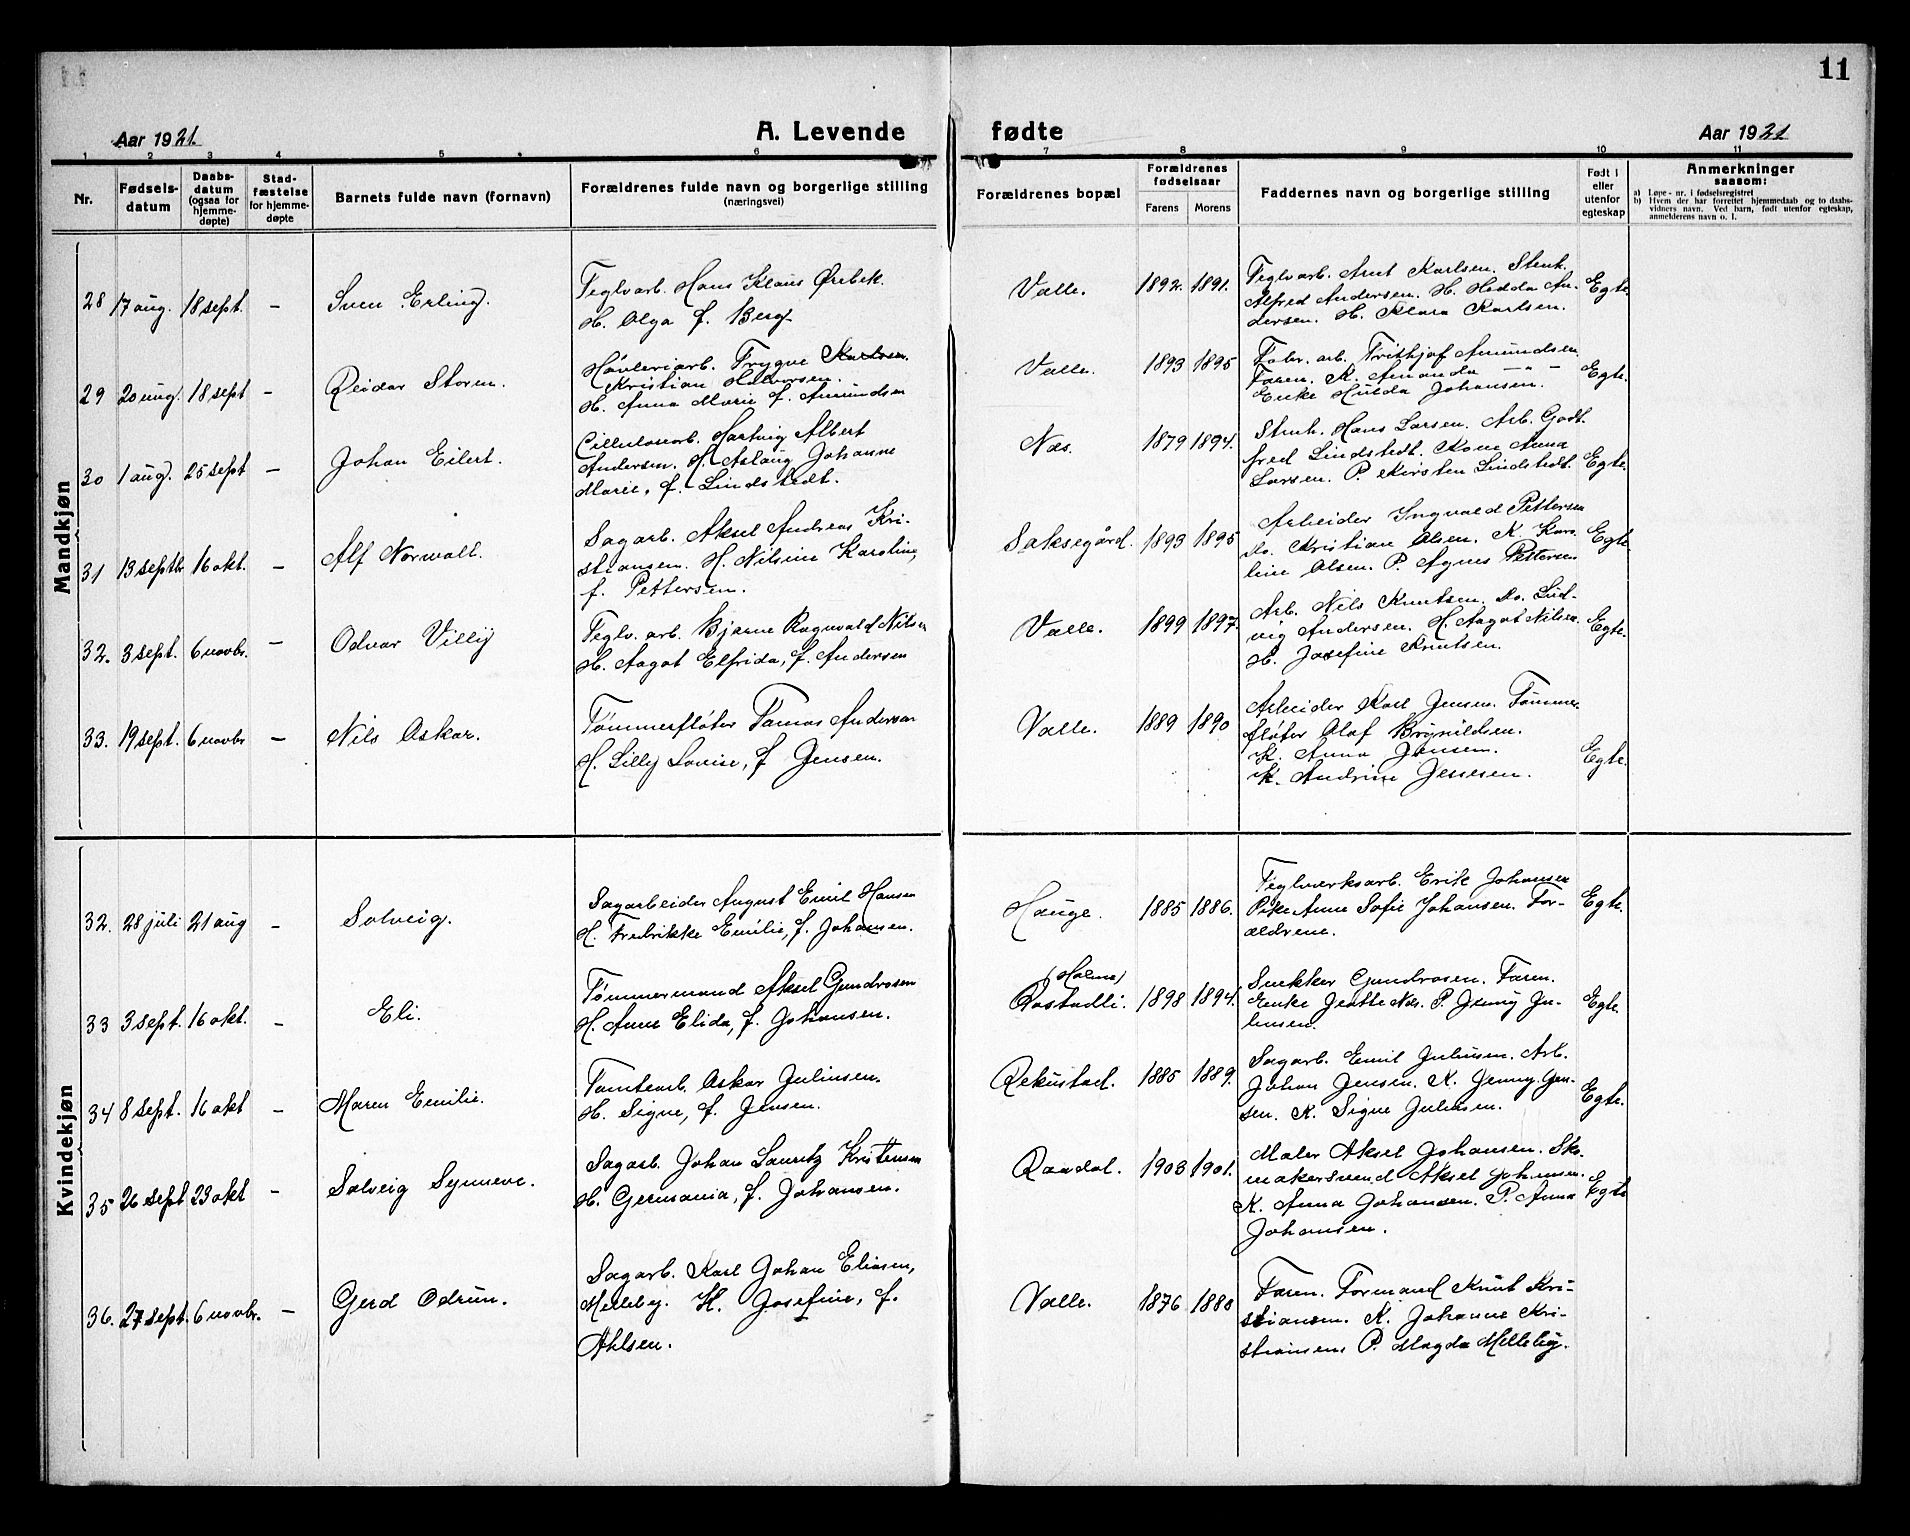 11
Aar 1921. A. Levende fødte Aar 1921
1 2 3 4 5 6 7 8 9 10 11
Nr. Fødsels-datum Daabs-datum (ogsaa for hjemme-døpte) Stad-fæstelse for hjemme-døpte Barnets fulde navn (fornavn) Forældrenes fulde navn og borgerlige stilling (næringsvei) Forældrenes bopæl Forældrenes fødselsaar Farens Morens Faddernes navn og borgerlige stilling Født i eller utenfor egteskap Anmerkninger saasom:
a) Løpe-nr. i fødselsregistret
b) Hvem der har forrettet hjemmedaab og to daabs-
vidners navn. Ved barn, født utenfor egteskap,
anmelderens navn o. l.
Mandkjøn
28 17 aug. 18 sept. – Sven Erling.
Teglvarb. Hans Klaus Ørebek.
H. Olga f. Berg.
Valle. 1892. 1891.
Teglvarb. Arnt Karlsen. Stenh.
Alfred Andersen. H. Hedda An-
dersen. H. Klara Karlsen.
Egte.
29 20 aug. 18 sept – Reidar Storm.
Høvleriarb. Trygve Karlsen.
Kristian Halvorsen.
H. Anna Marie f. Amundsen
Valle. 1893 1895
Fabr. arb. Frithjof Amundsen
Faren. K. Amanda – " –
Enke Hulda Johansen.
Egte.
30 1 aug. 25 sept – Johan Eilert.
Cellulosearb. Hartvig Albert
Andersen. H. Aslaug Johanne
Marie, f. Lindstedt.
Næs. 1879 1894.
Stenh. Hans Larsen. Arb. Godt-
fred Lindstedt. Kone Anna
Larsen. P. Kirsten Lindstedt.
Egte.
31 13 septbr 16 okt. – Alf Norwall.
Sagarb. Aksel Andreas Kri-
stiansen. H. Nilsine Karoline,
f. Pettersen.
Saksegård. 1893 1895
Arbeider Ingvald Pettersen
Do. Kristian Olsen. K. Karo-
line Olsen. P. Agnes Pettersen
Egte.
32. 3 sept. 6 novbr. – Odvar Villy
Teglv. arb. Bjarne Ragnvald Nilsen
H. Aagot Elfrida, f. Andersen
Valle. 1899 1897.
Arb. Nils Knutsen. Do. Lud-
vig Andersen. H. Aagot Nilsen.
H. Josefine Knutsen.
Egte.
33. 19 sept. 6 novbr – Nils Oskar.
Tømmerfløter Tomas Andersen
H. Lilly Lovise, f Jensen.
Valle. 1889 1890
Arbeider Karl Jensen. Tømmer-
fløter Olaf Brynildsen.
K. Anna Jensen.
K. Andrine Jessesen.
Egte.
Kvindekjøn
32. 28 juli 21 aug – Solveig.
Sagarbeider August Emil Hansen
H. Fredrikke Emilie, f. Johansen.
Hauge. 1885 1886.
Teglverksarb. Erik Johansen
Pike Anne Sofie Johansen. For-
ældrene.
Egte.
33 3 sept. 16 okt. – Eli.
Tømmermand Aksel Gundrosen
H. Anne Elida, f. Johansen.
(Holme)
Rostadli. 1898 1894.
Snekker Gundrosen. Faren.
Enke Næs. P. Jenny Ju-
liusen.
Egte.
34 8 sept. 16 okt – Maren Emilie.
Tomtearb. Oskar Juliusen.
H. Signe, f. Jensen.
Rekustad. 1885 1889.
Sagarb. Emil Juliusen. Arb.
Johan Jensen. K. Jenny Jen-
sen. K. Signe Juliusen.
Egte.
35 26 sept 23 okt – Solveig Synnøve.
Sagarb. Johan Lauritz Kristensen
H. Germania, f. Johansen.
Raadal. 1903 1901.
Maler Aksel Johansen. Sko-
makersvend Aksel Johansen.
K. Anna Johansen. P. Anna
Johansen.
Egte
36. 27 sept. 6 novbr. – Gerd Odrun.
Sagarb. Karl Johan Eliasen,
Melleby. H. Josefine, f.
Ahlsen.
Valle. 1876 1880
Faren. Formand Knut Kri-
stiansen. K. Johanne Kri-
stiansen P. Magda Melleby.